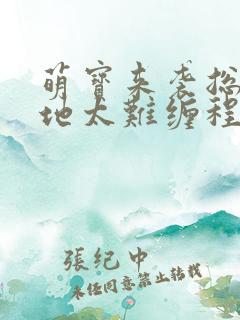 萌寶來袭總
地太難缠程
張纪中
未经同意禁止转载